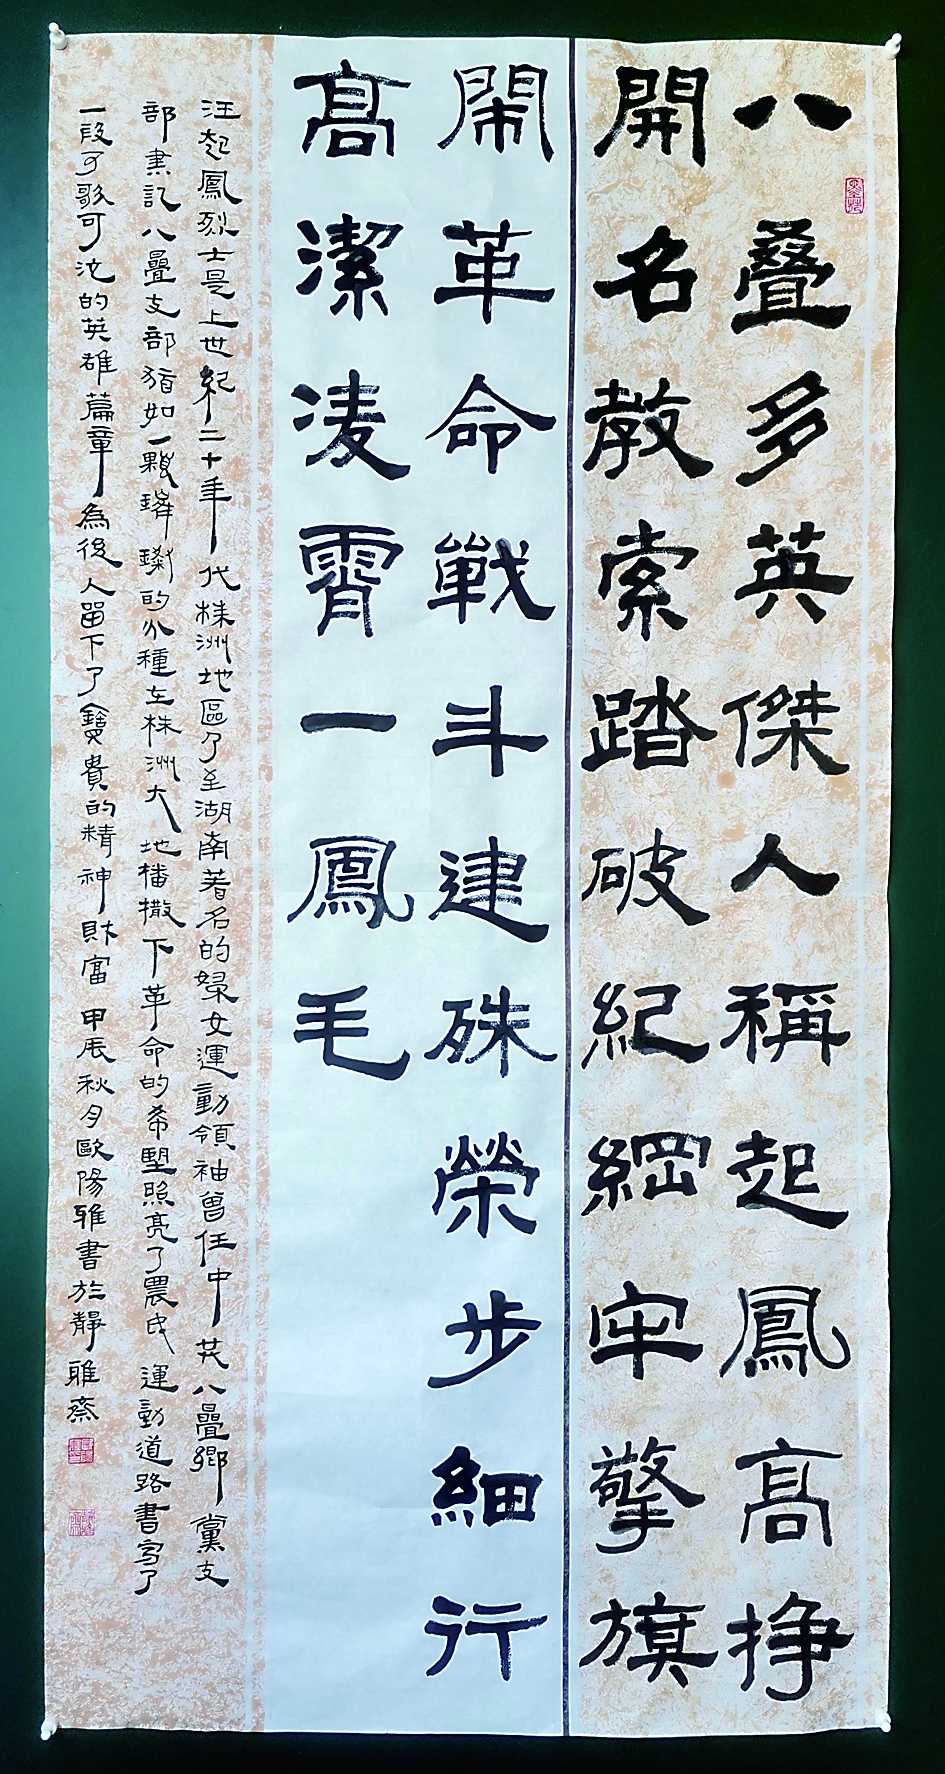 八叠多英傑人稱起鳳高掙
開名教索踏破紀綱牢擎旗
鬧革命戰斗建殊榮步細行
高潔凌霄一鳳毛
汪起鳳烈士是上世紀二十年代株洲地區乃至湖南著名的婦女運動領袖曾任中共八疊鄉黨支
部書記八疊支部猶如一顆璀璨的火種在株洲大地播撒下革命的希望照亮了農民運動道路書寫了
一段可歌可泣的英雄篇章為後人留下了寶貴的精神財富甲辰秋月歐陽雅書於靜雅齋